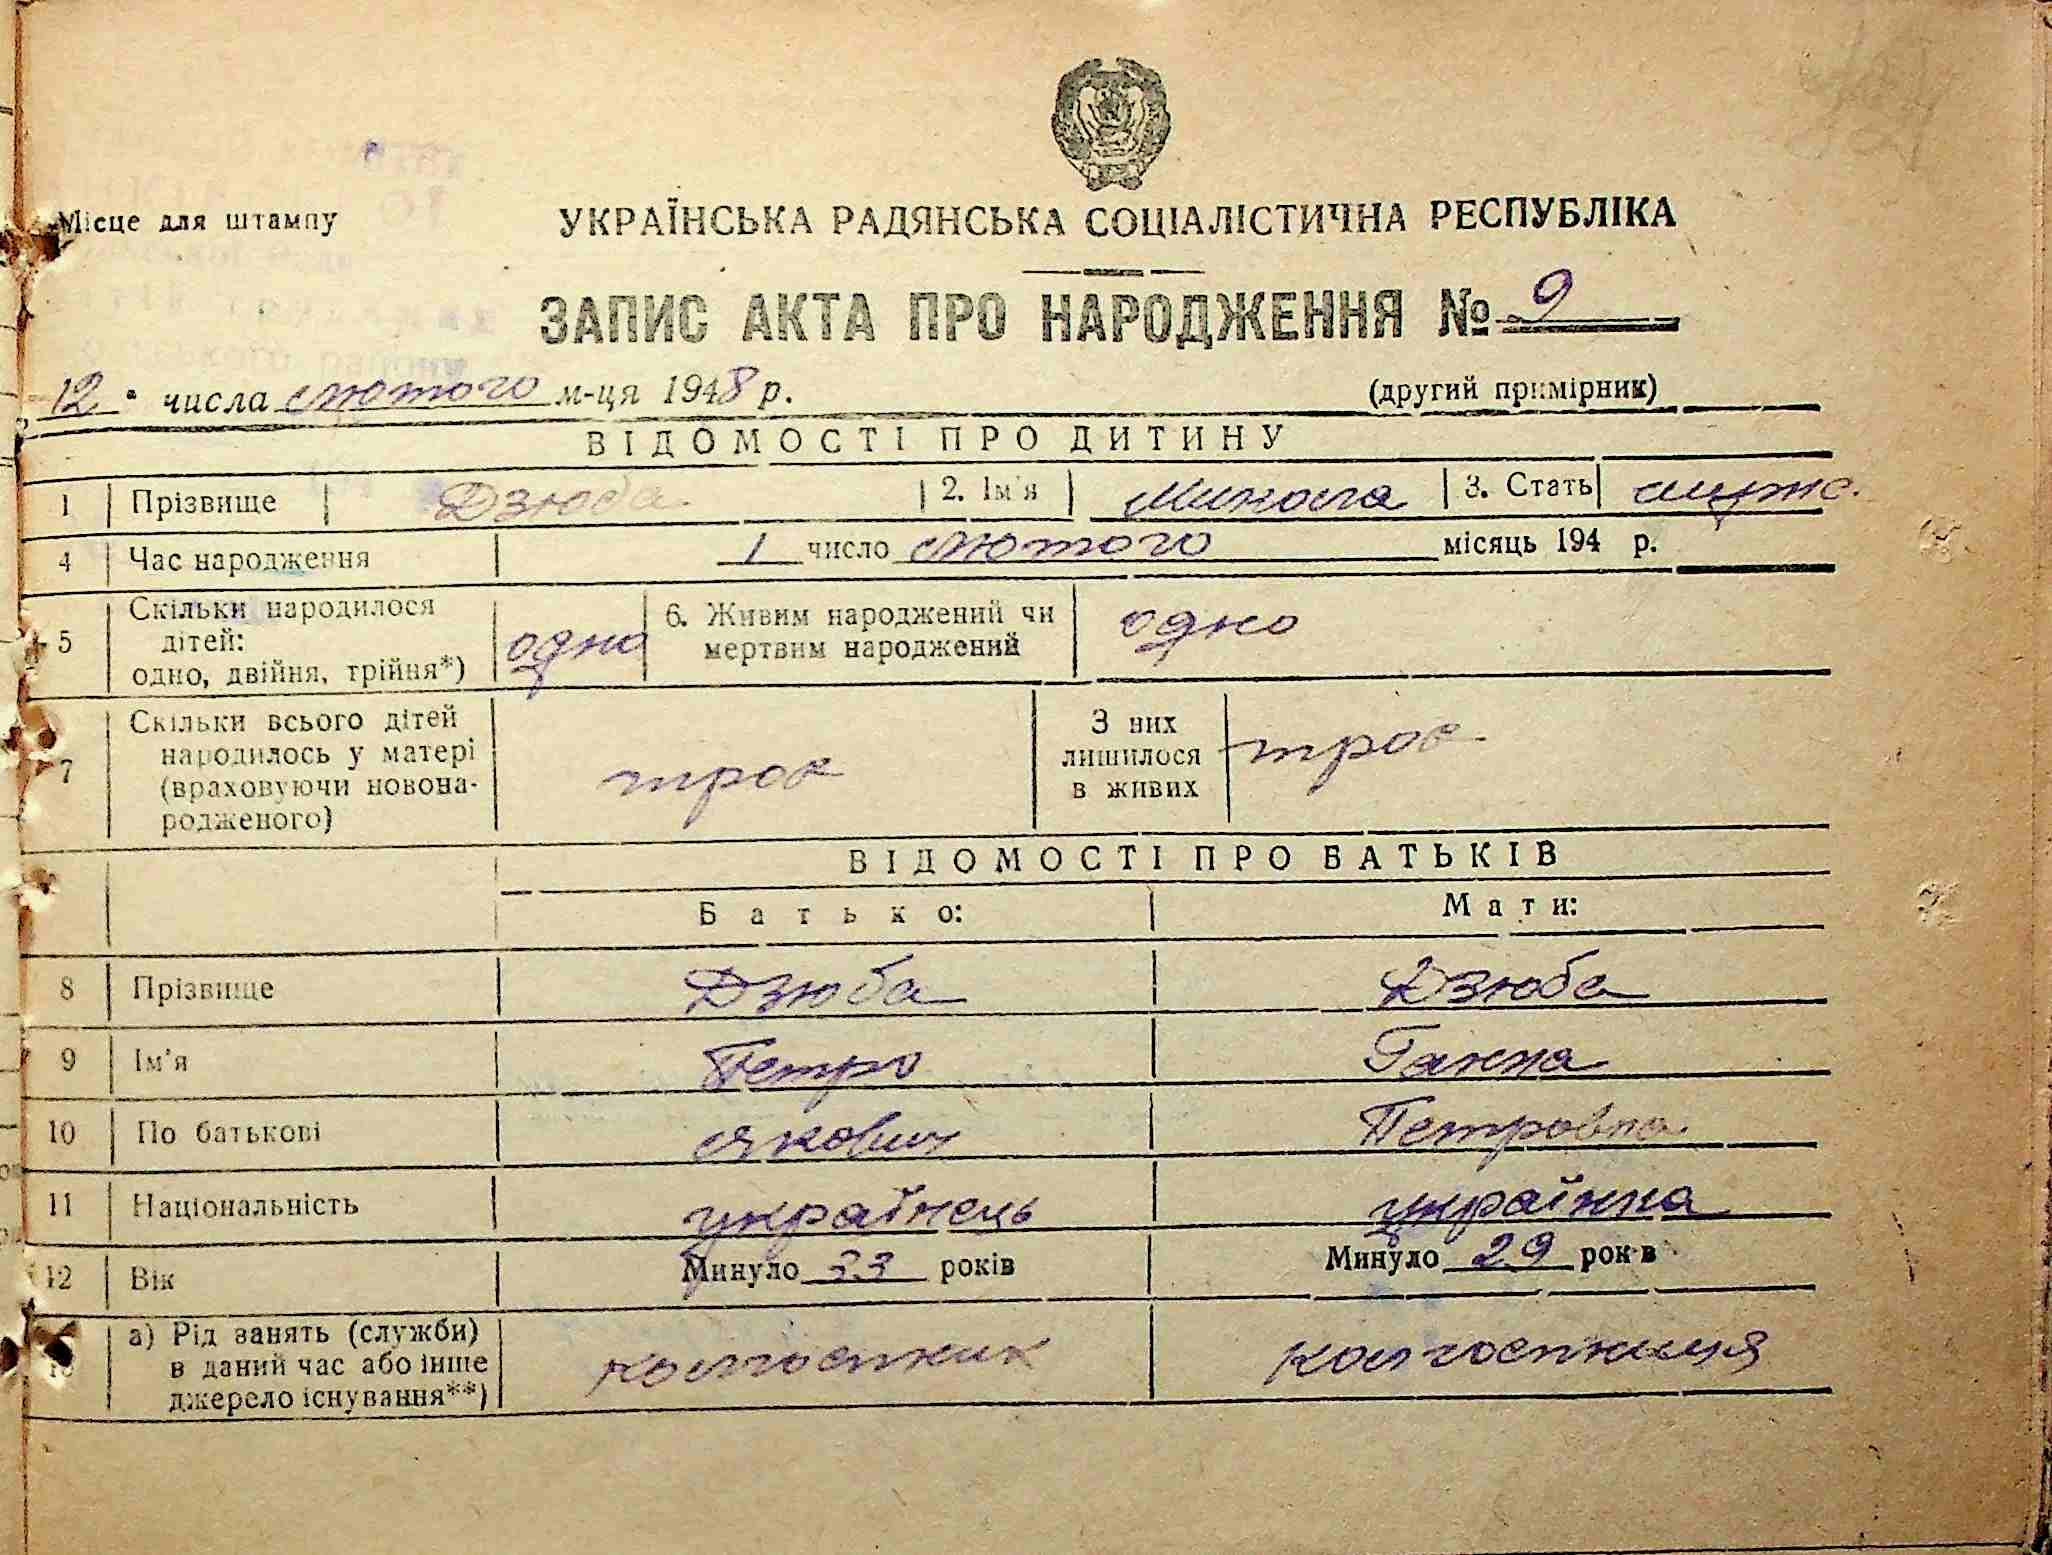 Місце для штампу
УКРАЇНСЬКА РАДЯНСЬКА СОЦІАЛІСТИЧНА РЕСПУБЛІКА
ЗАПИС АКТА ПРО НАРОДЖЕННЯ № 9
12 числа лютого м-ця 1948 р. (другий примірник)
ВІДОМОСТІ ПРО ДИТИНУ
1 Прізвище Дзюба 2. Ім'я Микола 3. Стать муж.
4 Час народження 1 число лютого місяць 194 р.
5 Скільки народилося дітей: одно, двійня, трійня*) одно 6. Живим народжений чи мертвим народжений одно
7 Скільки всього дітей народилось у матері (враховуючи новонародженого) троє З них лишилося в живих троє
ВІДОМОСТІ ПРО БАТЬКІВ
Батько: Мати:
8 Прізвище Дзюба Дзюба
9 Ім'я Петро Ганна
10 По батькові Якович Петровна
11 Національність українець українка
12 Вік Минуло 33 років Минуло 29 років
13 а) Рід занять (служби) в даний час або інше джерело існування**) колгоспник колгоспниця